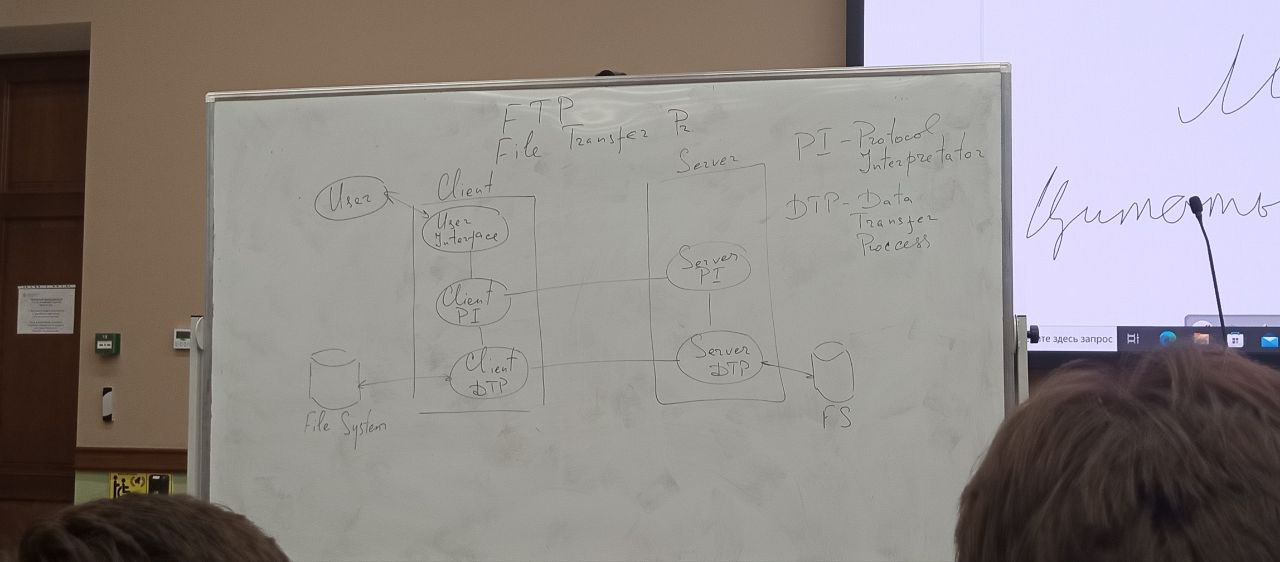 FTP
File Transfer Pr
PI - Protocol
Interpretator
DTP - Data
Transfer
Proccess
User
Client
User
Interface
Client
PI
Client
DTP
File System
Server
Server
PI
Server
DTP
FS
Цитать
те здесь запрос